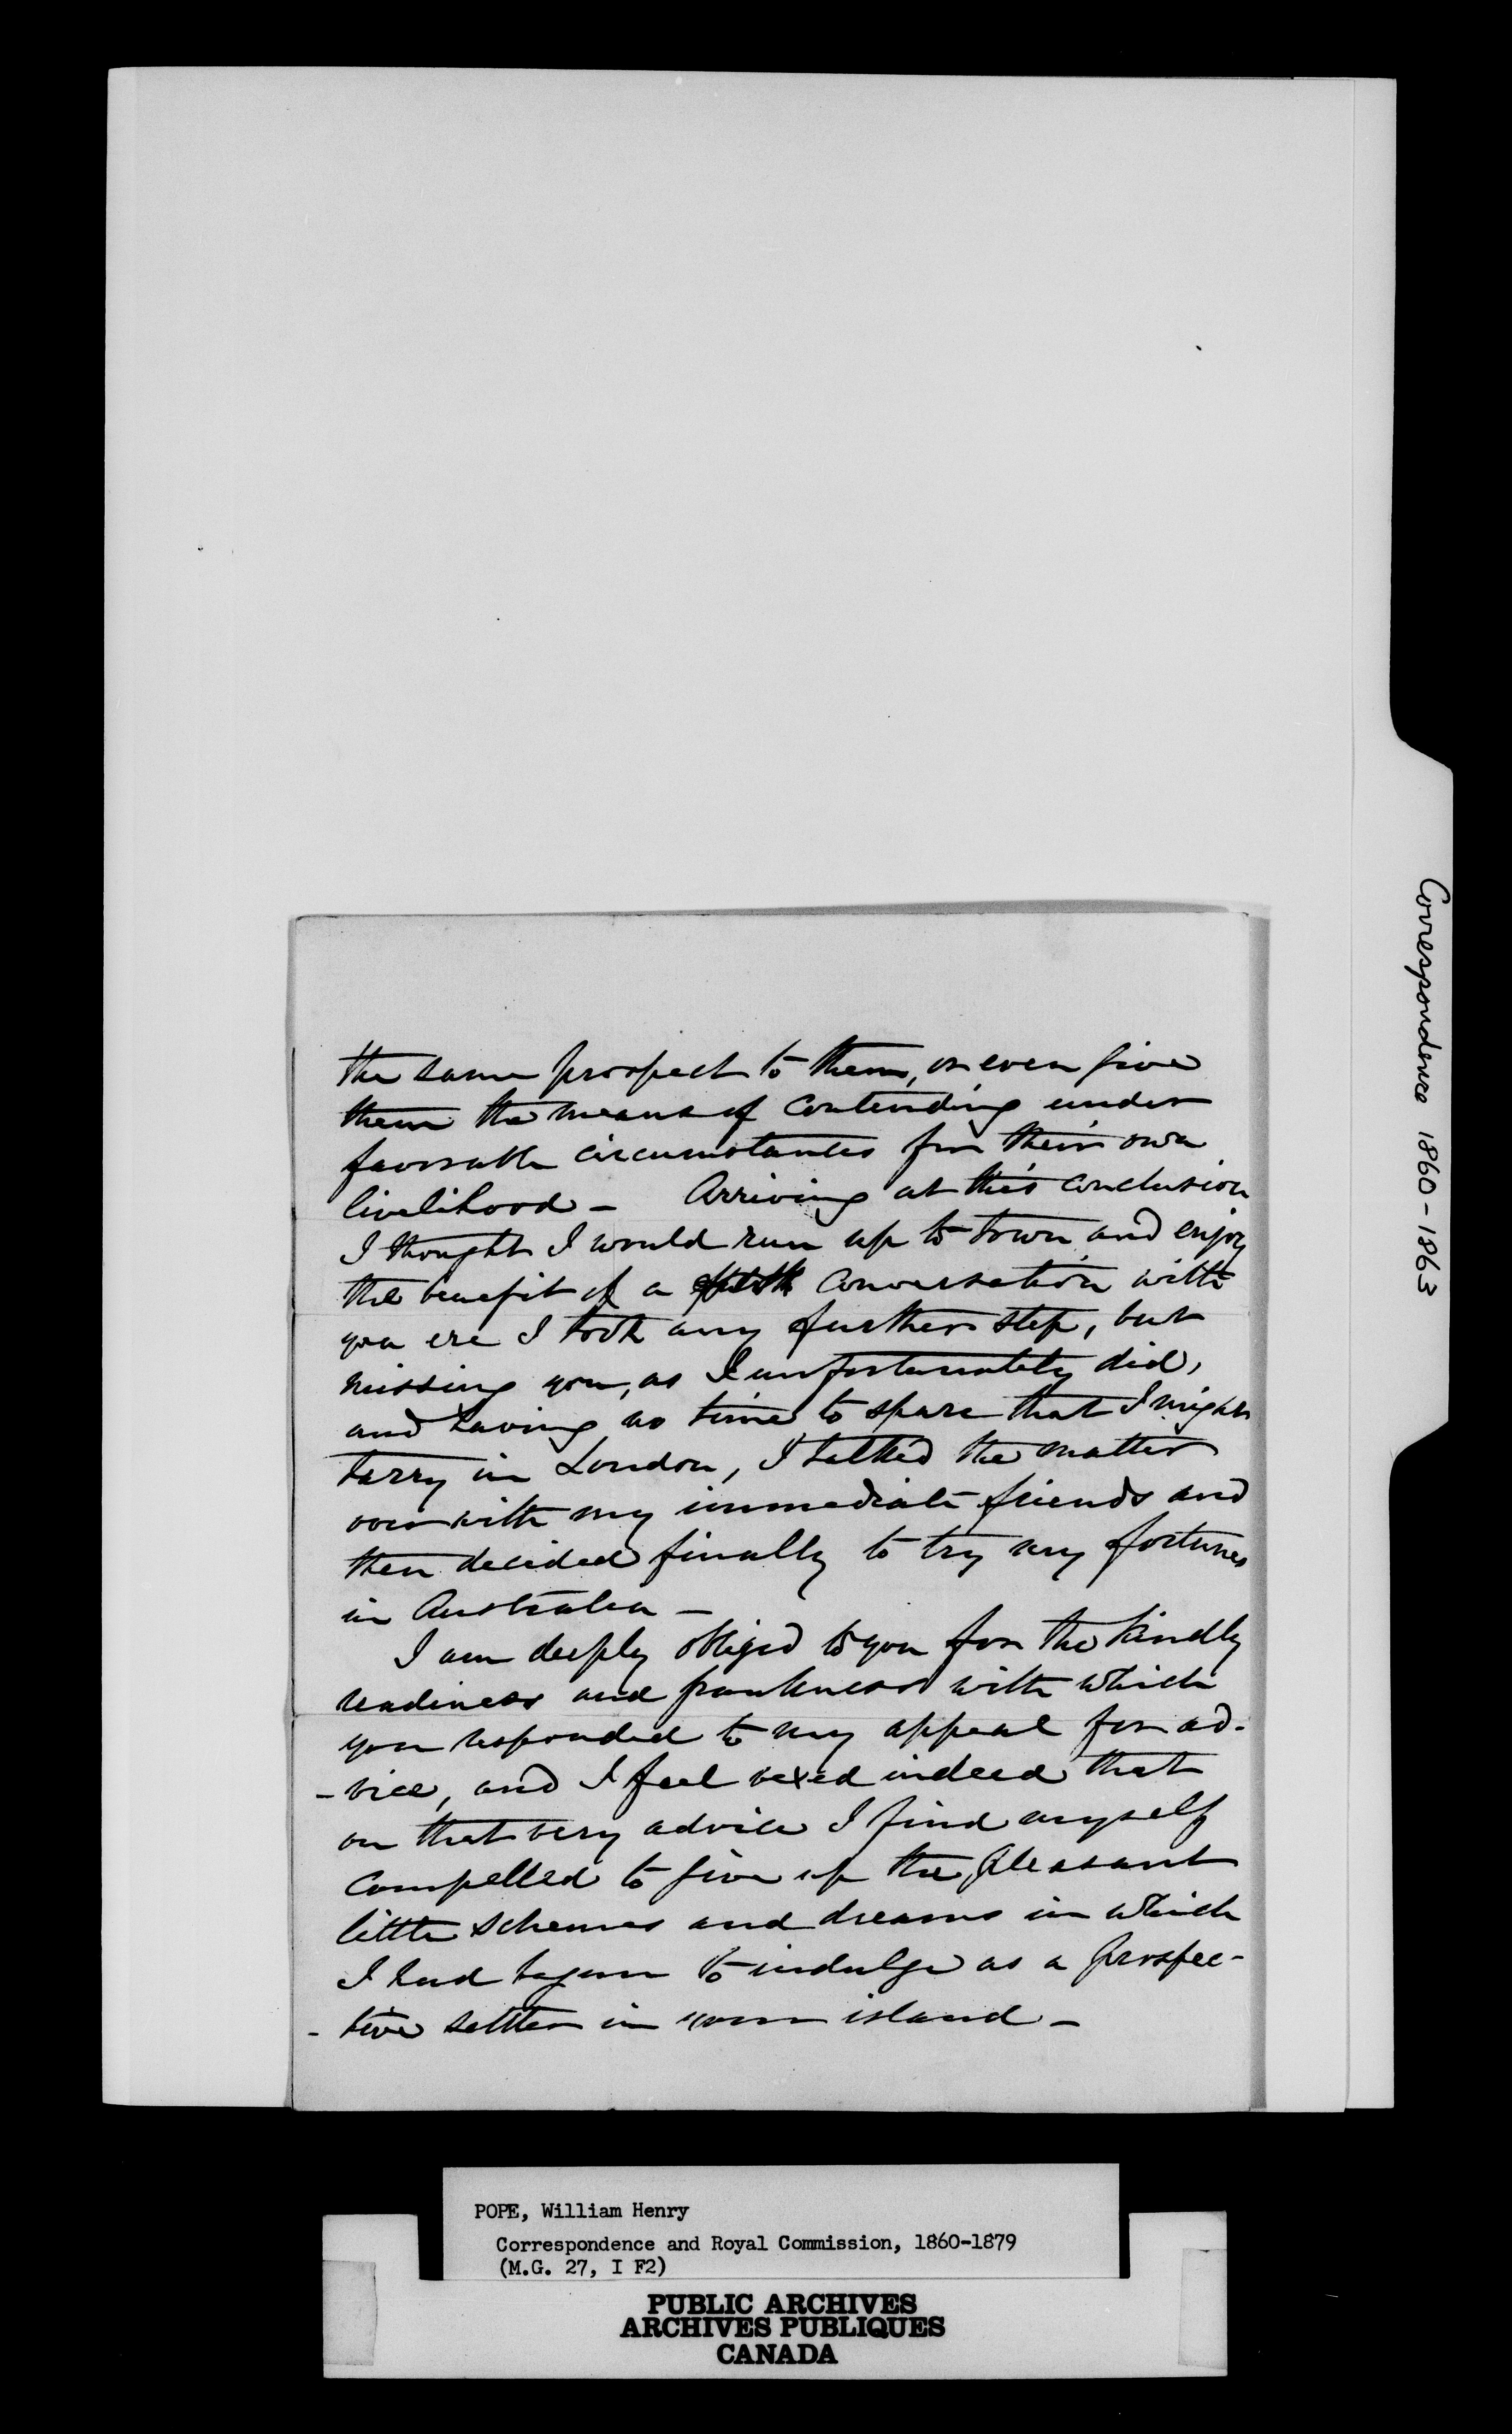 the same prospect to them, or even give
them the means of contending under
favorable circumstances for their own
livelihood – Arriving at this conclusion
I thought I would run up to town and enjoy
the benefit of a conversation with
you ere I took any further step, but
missing you, as I unfortunately did,
and having no time to spare that I might
tarry in London, I talked the matter
over with my immediate friends and
then decided finally to try my fortunes
in Australia –
I am deeply obliged to you for the kindly
readiness and frankness with which
you responded to my appeal for ad-
-vice, and I feel vexed indeed that
on that very advice I find myself
compelled to give up the pleasant
little schemes and dreams in which
I had begun to indulge as a prospec-
-tive settler in your island –
Correspondence 1860-1863
POPE, William Henry
Correspondence and Royal Commission, 1860-1879
(M.G. 27, I F2)
PUBLIC ARCHIVES
ARCHIVES PUBLIQUES
CANADA